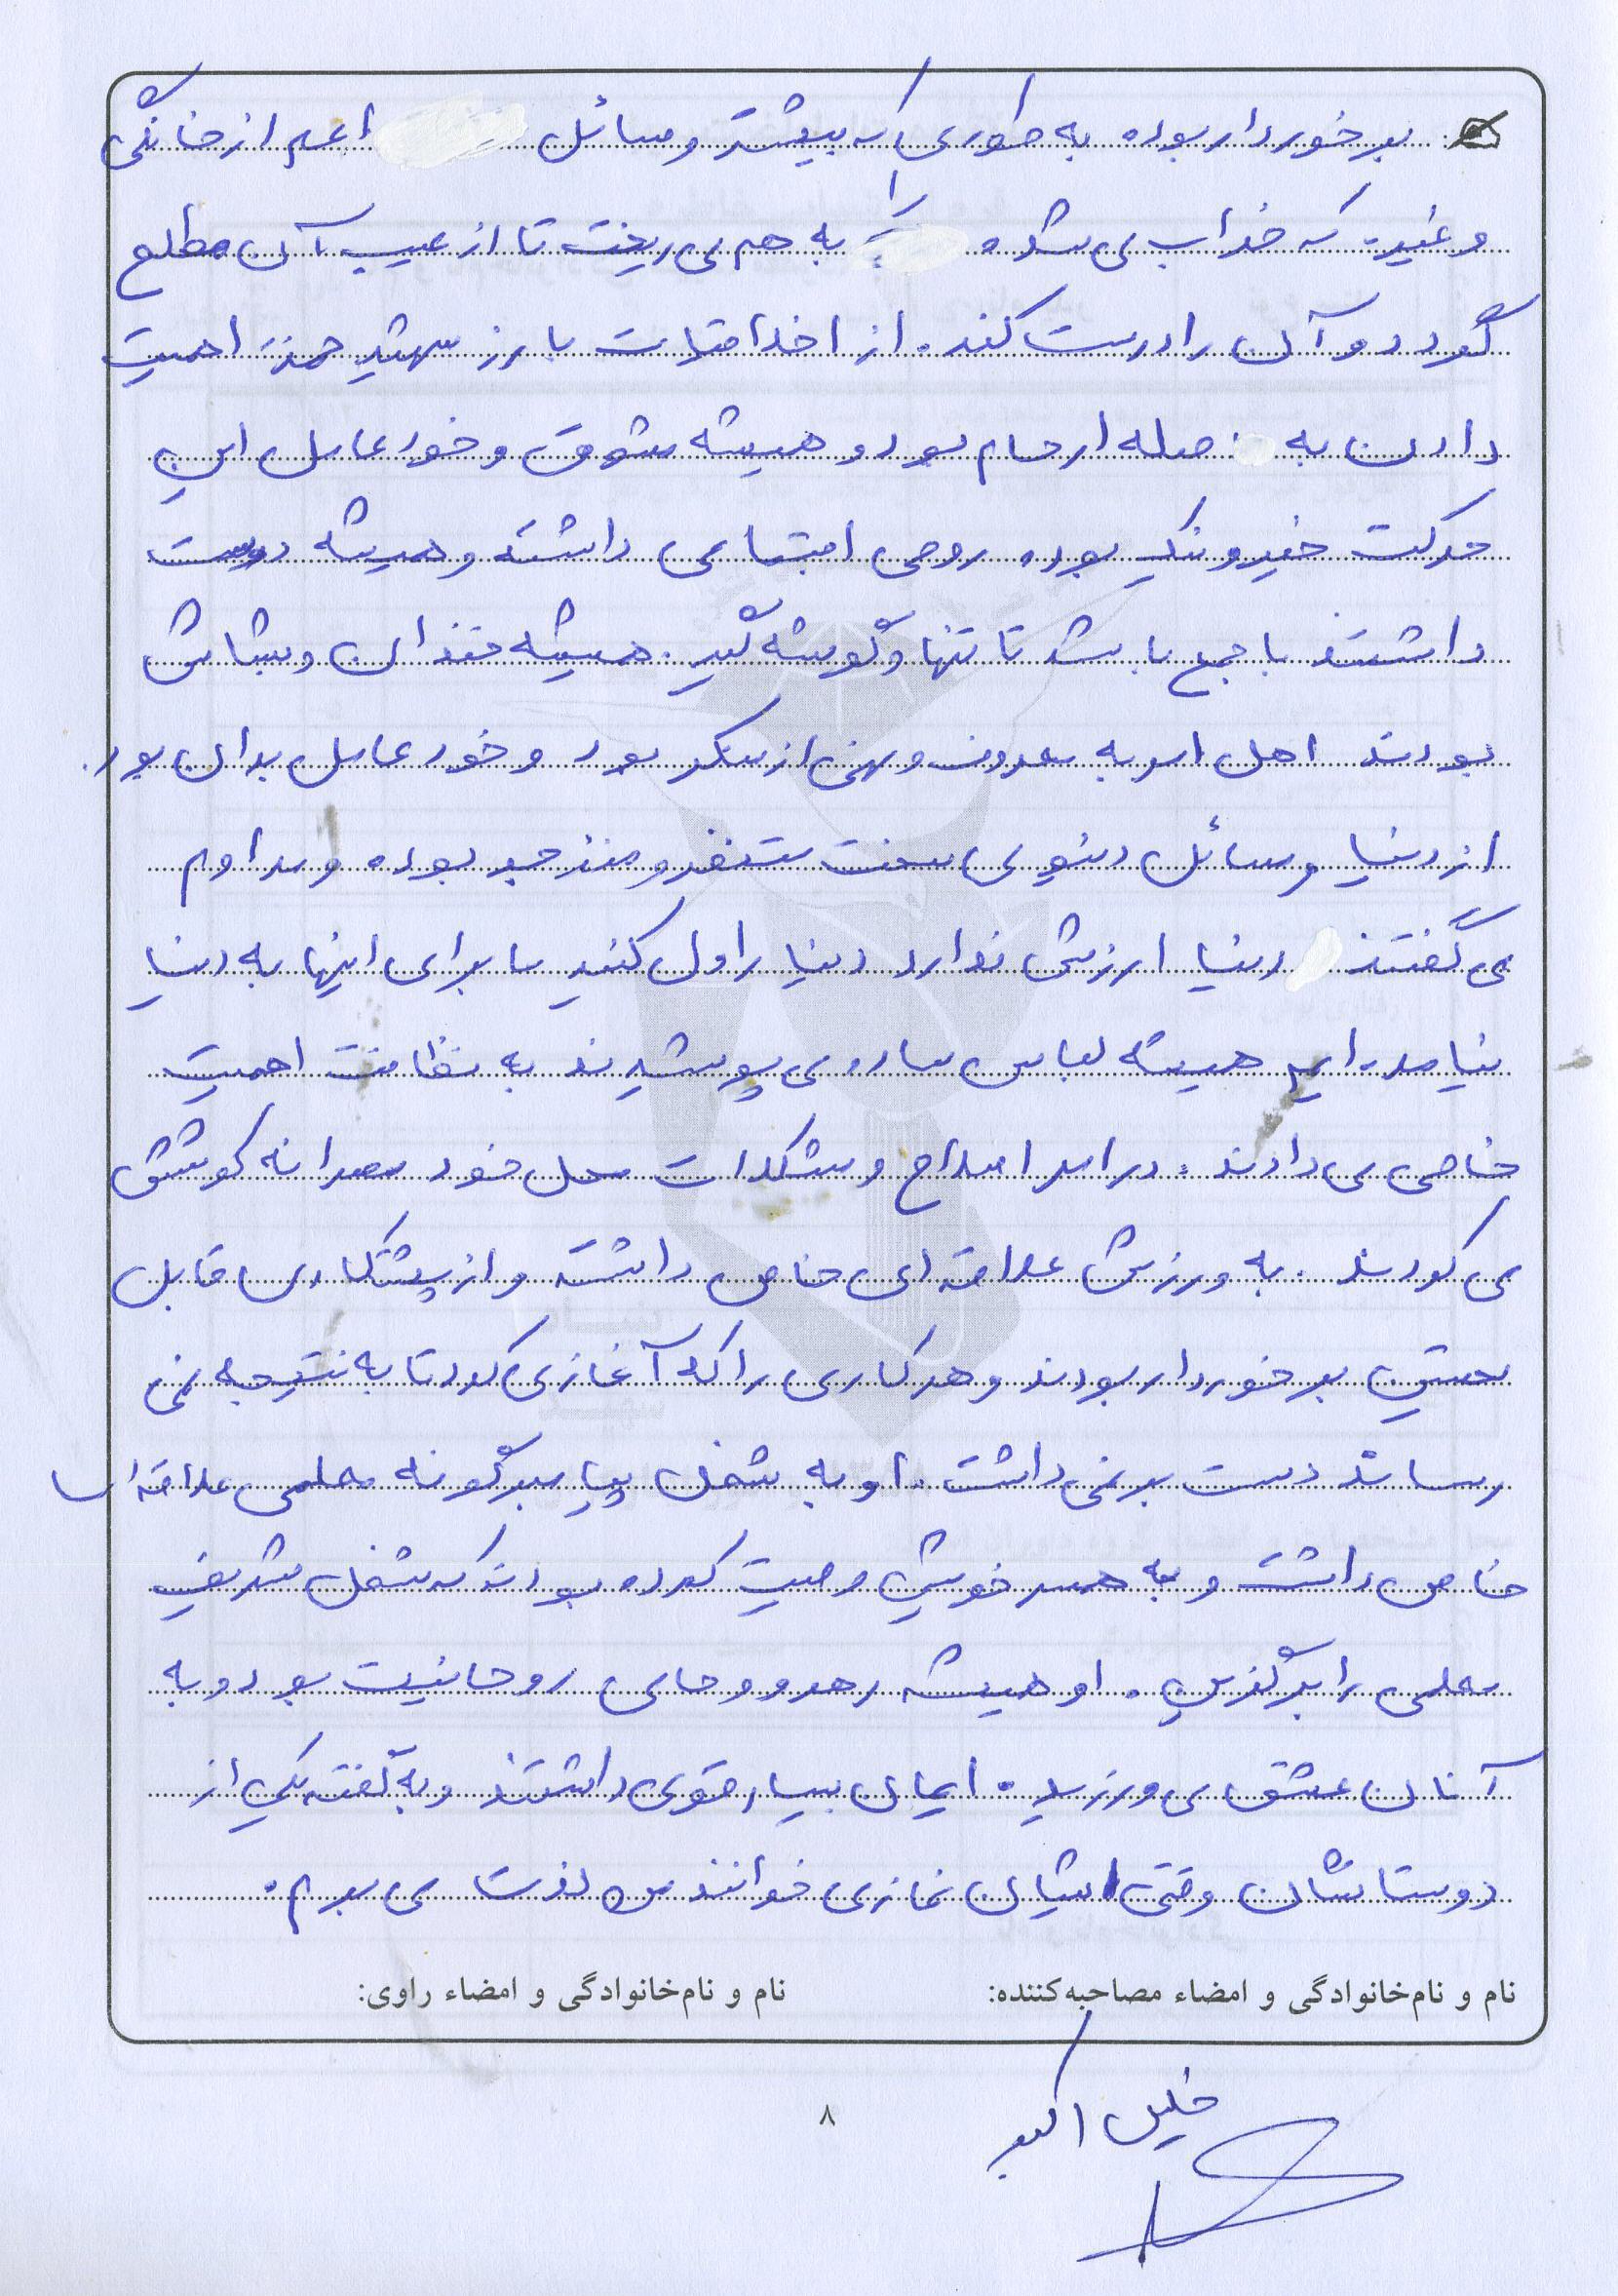 برخوردار بوده به طوری که بیشتر وسائل اعم از خانگی
و غیره که خراب می شد را به هم می ریخت تا از عیب آن مطلع
گردد و آن را درست کند. از اخلاقیات بارز شهید حمزه اهمیت
دادن به صله ارحام بود و همیشه مشوق و خود عامل این
حرکت خیر و نیک بوده روحی اجتماعی داشته و همیشه دوست
داشتند با جمع باشد تا تنها و گوشه گیر. همیشه خندان و بشاش
بودند اهل امر به معروف و نهی از منکر بود و خود عامل بدان بود.
از دنیا و مسائل دنیوی سخت متنفر و منزجر بوده و مداوم
می گفتند دنیا ارزشی ندارد دنیا را ول کنید ما برای اینها به دنیا
نیامده ایم همیشه لباس ساده می پوشیدند به نظافت اهمیت
خاصی می دادند. در امر اصلاح و مشکلات محل خود مصرانه کوشش
می کردند. به ورزش علاقه ای خاص داشته و از پشتکاری قابل
تحسین برخوردار بودند و هر کاری را که آغاز می کرد تا به نتیجه نمی
رساند دست بر نمی داشت. او به شغل پیامبر گونه معلمی علاقه
خاص داشت و به همسر خویش وصیت کرده بودند که شغل شریف
معلمی را برگزین. او همیشه رهرو و حامی روحانیت بود و به
آنان عشق می ورزید. ایمان بسیار قوی داشتند و به گفته یکی از
دوستانشان وقتی ایشان نماز می خوانند من لذت می برم.
نام و نام‌خانوادگی و امضاء مصاحبه‌کننده: نام و نام‌خانوادگی و امضاء راوی:
خلیل اکبر
۸